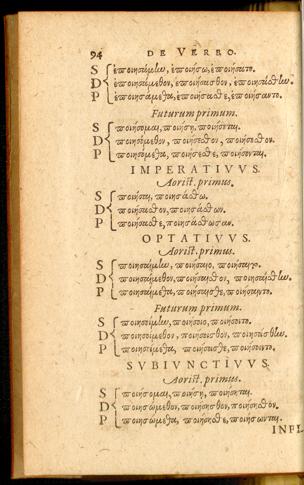 94 DE VERBO.
S ἐποιησάμην, ἐποιήσω, ἐποιήσατο.
D ἐποιησάμεθον, ἐποιήσασθον, ἐποιησάσθην.
P ἐποιησάμεθα, ἐποιήσασθε, ἐποιήσαντο.
Futurum primum.
S ποιήσομαι, ποιήσῃ,
D ποιησόμεθον, ποιήσεσθον.
P ποιησόμεθα, ποιήσεσθε, ποιήσονται.
IMPERATIVVS.
Aorist. primus.
S ποιήσαι, ποιησάσθω.
D ποιήσασθον, ποιησάσθων.
P ποιήσασθε, ποιησάσθωσαν.
OPTATIVVS.
Aorist. primus.
S ποιησαίμην, ποιήσαιο, ποιήσαιτο.
D ποιησαίμεθον, ποιησαίσθην.
P ποιησαίμεθα, ποιήσαισθε, ποιήσαιντο.
Futurum primum.
S ποιησοίμην, ποιήσοιο, ποιήσοιτο.
D ποιησοίμεθον, ποιήσοισθον, ποιησοίσθην.
P ποιησοίμεθα, ποιήσοισθε, ποιήσοιντο.
SVBIVNCTIVVS.
Aorist. primus.
S ποιήσωμαι, ποιήσῃ, ποιήσηται.
D ποιησώμεθον, ποιήσησθον, ποιήσησθον.
P ποιησώμεθα, ποιήσησθε, ποιήσωνται.
INFI-